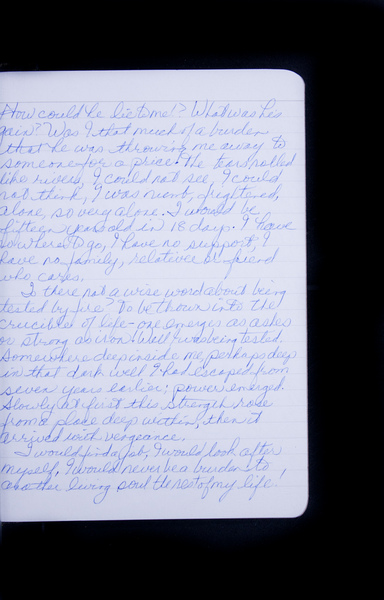 How could he lie to me!? What was his
gain? Was I that much of a burden
that he was throwing me away to
someone for a price. The tears rolled
like rivers, I could not see, I could
not think, I was numb, frightened,
alone, so very alone. I would be
fifteen years old in 18 days. I have
nowhere to go, I have no support, I
have no family, relatives or friend
who cares.
Is there not a wise word about being
tested by fire? To be thrown into the
crucible of life - one emerges as ashes
or strong as iron. Well I was being tested.
Somewhere deep inside me, perhaps deep
in that dark well I had escaped from
seven years earlier; power emerged.
Slowly at first this strength rose
from a place deep within, then it
arrived with vengeance.
I would find a job, I would look after
myself, I would never be a burden to
another living soul the rest of my life!